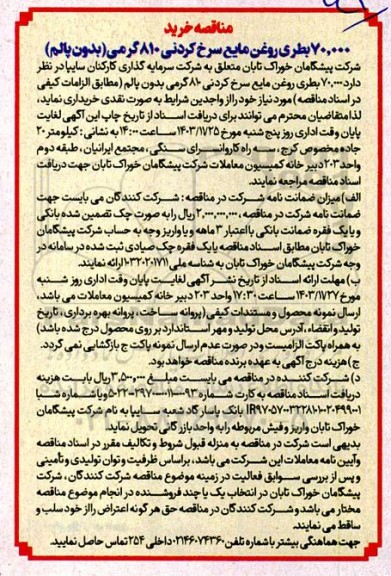 مناقصه خرید
۷۰,۰۰۰ بطری روغن مایع سرخ کردنی ۸۱۰ گرمی (بدون پالم)
شرکت پیشگامان خوراک تابان متعلق به شرکت سرمایه گذاری کارکنان سایپا در نظر
دارد ۷۰,۰۰۰ بطری روغن مایع سرخ کردنی ۸۱۰ گرمی بدون پالم (مطابق الزامات کیفی
در اسناد مناقصه) مورد نیاز خود را از واجدین شرایط به صورت نقدی خریداری نماید،
لذا متقاضیان محترم می توانند برای دریافت اسناد از تاریخ چاپ این آگهی لغایت
پایان وقت اداری روز پنج شنبه مورخ ۱۴۰۳/۱۷/۲۵ ساعت ۱۴:۰۰ به نشانی: کیلومتر ۲۰
جاده مخصوص کرج، سه راه کاروانسرای سنگی، مجتمع ایرانیان، طبقه دوم
واحد ۲۰۳ دبیر خانه کمیسیون معاملات شرکت پیشگامان خوراک تابان جهت دریافت
اسناد مناقصه مراجعه نمایند.
الف) میزان ضمانت نامه شرکت در مناقصه: شرکت کنندگان می بایست جهت
ضمانت نامه شرکت در مناقصه، ۲,۰۰۰,۰۰۰,۰۰۰ ریال را به صورت چک تضمین شده بانکی
و یا یک فقره ضمانت بانکی با اعتبار ۳ ماهه و یا واریز وجه به حساب شرکت پیشگامان
خوراک تابان مطابق اسناد مناقصه یا یک فقره چک صیادی ثبت شده در سامانه در
وجه شرکت پیشگامان خوراک تابان به شناسه ملی ۱۰۳۲۰۲۰۱۷۱۱ ارائه نمایند.
ب) مهلت ارائه اسناد از تاریخ نشر آگهی لغایت پایان وقت اداری روز شنبه
مورخ ۱۴۰۳/۱۷/۲۷ ساعت ۱۷:۳۰ واحد ۲۰۳ دبیر خانه کمیسیون معاملات می باشد،
ارسال نمونه محصول و مستندات کیفی (پروانه ساخت، پروانه بهره برداری، تاریخ
تولید و انقضاء، آدرس محل تولید و مهر استاندارد بر روی محصول درج شده باشد)
به همراه پاکت الزامیست و در صورت عدم ارسال نمونه پاکت ج بازگشایی نمی گردد.
ج) هزینه درج آگهی به عهده برنده مناقصه خواهد بود.
د) شرکت کننده در مناقصه می بایست مبلغ ۳,۵۰۰,۰۰۰ ریال بابت هزینه
دریافت اسناد مناقصه به کارت شماره و یا شماره شبا
بانک پاسارگاد شعبه سایپا به نام شرکت پیشگامان
خوراک تابان واریز و فیش مربوطه را به واحد بازرگانی تحویل نماید
بدیهی است شرکت در مناقصه به منزله قبول شروط و تکالیف مقرر در اسناد مناقصه
و آیین نامه معاملات این شرکت می باشد، براساس ظرفیت و توان تولیدی و تأمینی
و پس از بررسی سوابق فعالیت در زمینه موضوع مناقصه شرکت کنندگان، شرکت
پیشگامان خوراک تابان در انتخاب یک یا چند فروشنده در انجام موضوع مناقصه
مختار می باشد و شرکت کنندگان در مناقصه حق هر گونه اعتراض را از خود سلب و
ساقط می نمایند.
جهت هماهنگی بیشتر با شماره تلفن ۰۲۱۴۶۰۷۴۳۶۰ داخلی ۲۵۴ تماس حاصل نمایید.